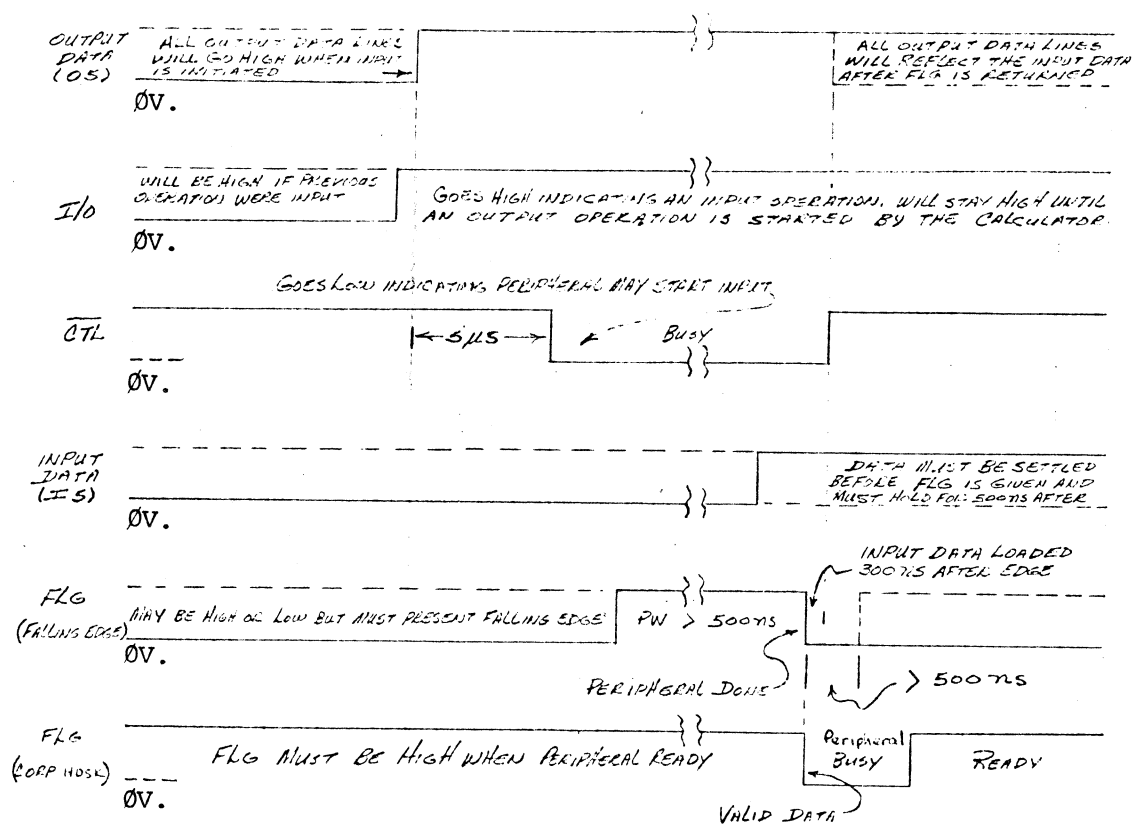 OUTPUT DATA (OS)
ALL OUTPUT DATA LINES
WILL GO HIGH WHEN INPUT
IS INITIATED
ØV.
ALL OUTPUT DATA LINES
WILL REFLECT THE INPUT DATA
AFTER FLG IS RETURNED
I/O
WILL BE HIGH IF PREVIOUS
OPERATION WERE INPUT
GOES HIGH INDICATING AN INPUT OPERATION. WILL STAY HIGH UNTIL
AN OUTPUT OPERATION IS STARTED BY THE CALCULATOR.
ØV.
GOES LOW INDICATING PERIPHERAL MAY START INPUT
CTL
5 µS
BUSY
ØV.
INPUT DATA (IS)
DATA MUST BE SETTLED
BEFORE FLG IS GIVEN AND
MUST HOLD FOR 500ns AFTER
ØV.
INPUT DATA LOADED
300ns AFTER EDGE
FLG
(FALLING EDGE)
MAY BE HIGH OR LOW BUT MUST PRESENT FALLING EDGE
PW > 500ns
ØV.
PERIPHERAL DONE
> 500 ns
FLG
(CORP HDSK)
FLG MUST BE HIGH WHEN PERIPHERAL READY
Peripheral
BUSY
READY
ØV.
VALID DATA